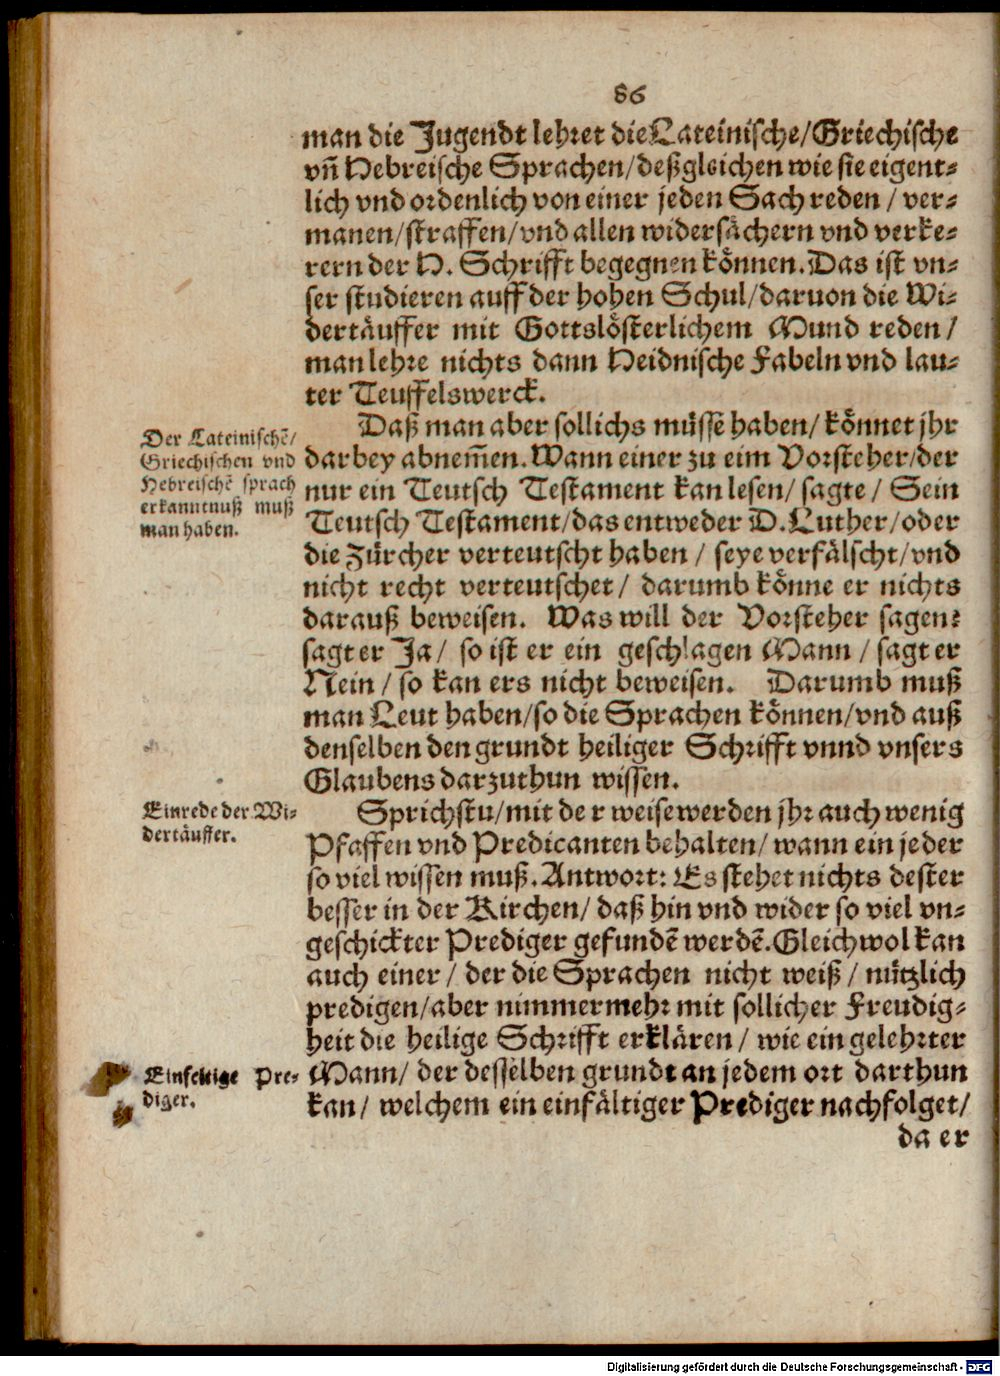 86
man die Jugendt lehret die Lateinische/Griechische
vñ Hebreische Sprachen/deßgleichen wie sie eigent-
lich vnd ordenlich von einer jeden Sach reden / ver-
manen/straffen/vnd allen widersächern vnd verke-
rern der H. Schrifft begegnen können. Das ist vn-
ser studieren auff der hohen Schul/daruon die Wi-
dertäuffer mit Gottslösterlichem Mund reden /
man lehre nichts dann Heidnische Fabeln vnd lau-
ter Teuffelswerck.
Der Lateinischē/
Griechischen vnd
Hebreischē sprach
erkanntnuß muß
man haben.
Daß man aber sollichs müssē haben/ könnet jhr
darbey abnem̃en. Wann einer zu eim Vorsteher/der
nur ein Teutsch Testament kan lesen/ sagte / Sein
Teutsch Testament/das entweder D. Luther/oder
die Zürcher verteutscht haben / seye verfälscht/vnd
nicht recht verteutschet / darumb könne er nichts
darauß beweisen. Was will der Vorsteher sagen?
sagt er Ja / so ist er ein geschlagen Mann / sagt er
Nein / so kan ers nicht beweisen. Darumb muß
man Leut haben/so die Sprachen können/vnd auß
denselben den grundt heiliger Schrifft vnnd vnsers
Glaubens darzuthun wissen.
Einrede der Wi-
dertäuffer.
Sprichstu/mit de r weise werden jhr auch wenig
Pfaffen vnd Predicanten behalten/ wann ein jeder
so viel wissen muß. Antwort: Es stehet nichts dester
besser in der Kirchen/ daß hin vnd wider so viel vn-
geschickter Prediger gefundē werdē. Gleichwol kan
auch einer / der die Sprachen nicht weiß / nützlich
predigen/aber nimmermehr mit sollicher Freudig-
heit die heilige Schrifft erklären / wie ein gelehrter
Einfeltige Pre-
diger.
Mann/ der desselben grundt an jedem ort darthun
kan/ welchem ein einfältiger Prediger nachfolget/
da er
Digitalisierung gefördert durch die Deutsche Forschungsgemeinschaft - DFG